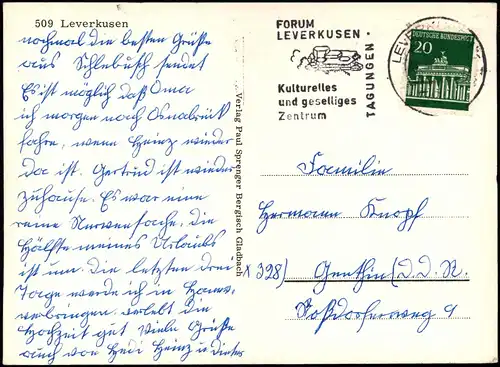 509 Leverkusen
nochmal die besten Grüße
aus Schlebusch sendet
Es ist möglich daß Oma
ich morgen nach Osnabrück
fahre, wenn Heinz wieder
da ist. Gertrud ist wieder
zuhause. Es war eine
reine Nervensache, die
Hälfte meines Urlaubs
ist um. Die letzten drei
Tage werde ich in
verbringen, erlebt die
Hochzeit gut Viele Grüße
auch von Hedi Heinz u Dieter
Verlag Paul Sprenger Bergisch Gladbach
FORUM
LEVERKUSEN ·
Kulturelles
und geselliges
Zentrum
TAGUNGEN
DEUTSCHE BUNDESPOST
20
Familie
Hermann Knopf
X 328) Genthin (D.D.R.
Roßdorferweg 9